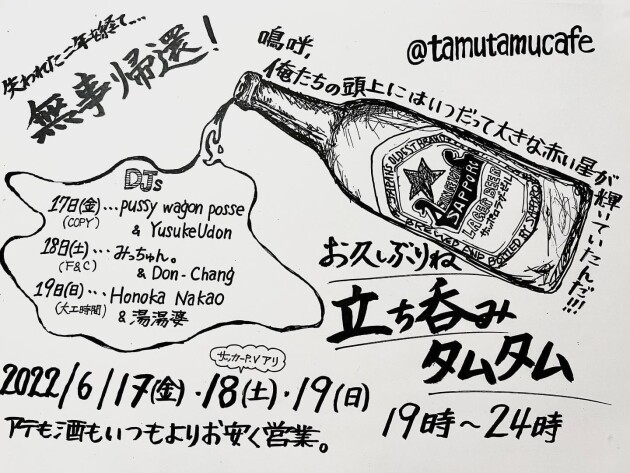 失われた二年を経て....
無事帰還!
嗚呼、
俺たちの頭上にはいつだって大きな赤い星が輝いていたんだ!!!
@tamutamucafe
JAPAN'S OLDEST BRAND
SAPPORO
LAGER BEER
サッポロラガービール
BREWED AND BOTTLED BY SAPPORO
DJs
17日(金)...pussy wagon posse
(COPY) & YusukeUdon
18日(土)...みっちゅん。
(F&C) & Don-Chang
19日(日)...Honoka Nakao
(大工時間) & 湯湯婆
お久しぶりね
立ち呑み
タムタム
サッカーP.Vアリ
2022/6/17(金)・18(土)・19(日)
19時～24時
アテも酒もいつもよりお安く営業。